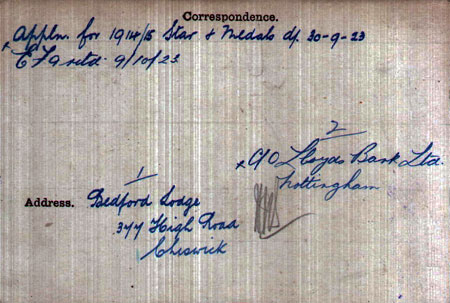 Correspondence.
x Appln. for 1914/15 Star & Medals d/. 30-9-23
E F 9 retd. 9/10/23
2
x C/O Lloyds Bank Ltd.
Nottingham
1
Address. Bedford Lodge
344 High Road
Chiswick